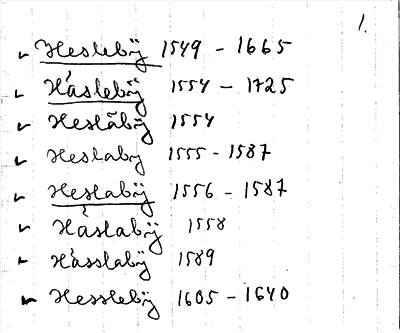 1.
Heslebÿ 1549 - 1665
Háslebÿ 1554 - 1725
Heslãbÿ 1554
Heslaby 1555 - 1587
Heslabÿ 1556 - 1587
Háslabÿ 1558
Hásslabÿ 1589
Hesslebÿ 1605 - 1640